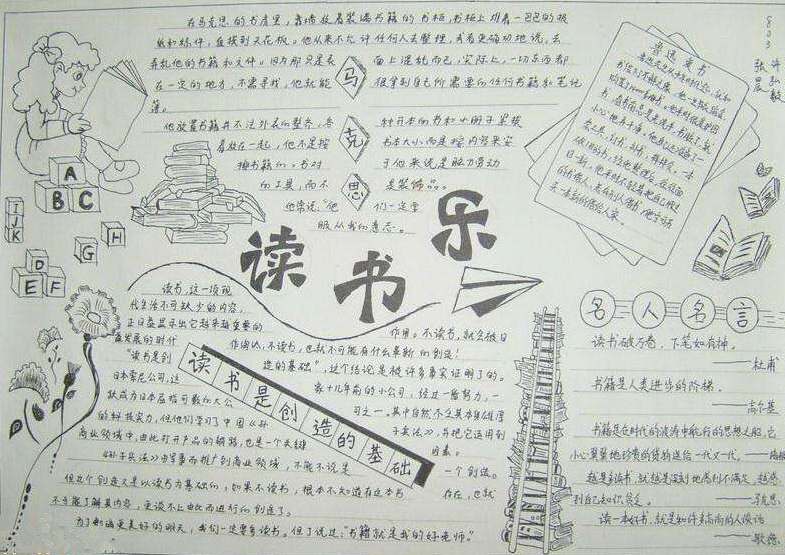 在马克思的书房里，靠墙放着装满书籍的书柜，书柜上堆着一包包的报
纸和稿件，直接到天花板。他从来不允许任何人去整理，或者更确切地说，去
弄乱他的书籍和文件。因为那只是表面上混乱而已，实际上，一切东西都
在一定的地方，不需寻找，他就能很拿到自己所需要的任何书籍和笔记
簿。
他放置书籍并不注外表的整齐，各种开本的书和小册子紧接
着放在一起，他不是按书本大小而是按内容来安
排书籍的。书对于他来说是脑力劳动
的工具，而不是装饰品。
他常说：“他们一定要
服从我的意志。
马
克
思
803
张晨
许弘毅
鲁迅 爱书
读书乐
读书，这一项现
代生活不可缺少的内容，
正日益显示出它越来越重要的作用。不读书，就会被日
益发展的时代作淘汰，不读书，也就不可能有什么革新的创造！
“读书是创造的基础”，这个结论是被许多事实证明了的。
日本索尼公司，这家十几年前的小公司，经过一番努力，一
跃成为日本屈指可数的大公司之一。其中自然不乏其本身雄厚
的科技实力，但他们学习了中国《孙子兵法》，并把它运用到
商业领域中，由此打开产品的销路，也是一个关键因素。
《孙子兵法》由军事而推广到商业领域，不能不说是一个创造。
但这个创造又是以读书为基础的，如果不读书，根本不知道有这本书存在，也就
不可能了解其内容，更谈不上由此而进行的创造了。
为了创造更美好的明天，我们一定要多读书。但丁说过：“书籍就是我的好老师。”
读书是创造的基础
名人名言
读书破万卷，下笔如有神。
——杜甫
书籍是人类进步的阶梯。
——高尔基
书籍是在时代的波涛中航行的思想之船，它
小心翼翼地珍贵的货物送给一代又一代。——培根
越是多读书，就越是深刻地感到不满足，越感
到自己知识贫乏。——马克思
读一本好书，就是如许多高尚的人谈话
——歌德
A
B C
I
J
K
D
E F
G
H